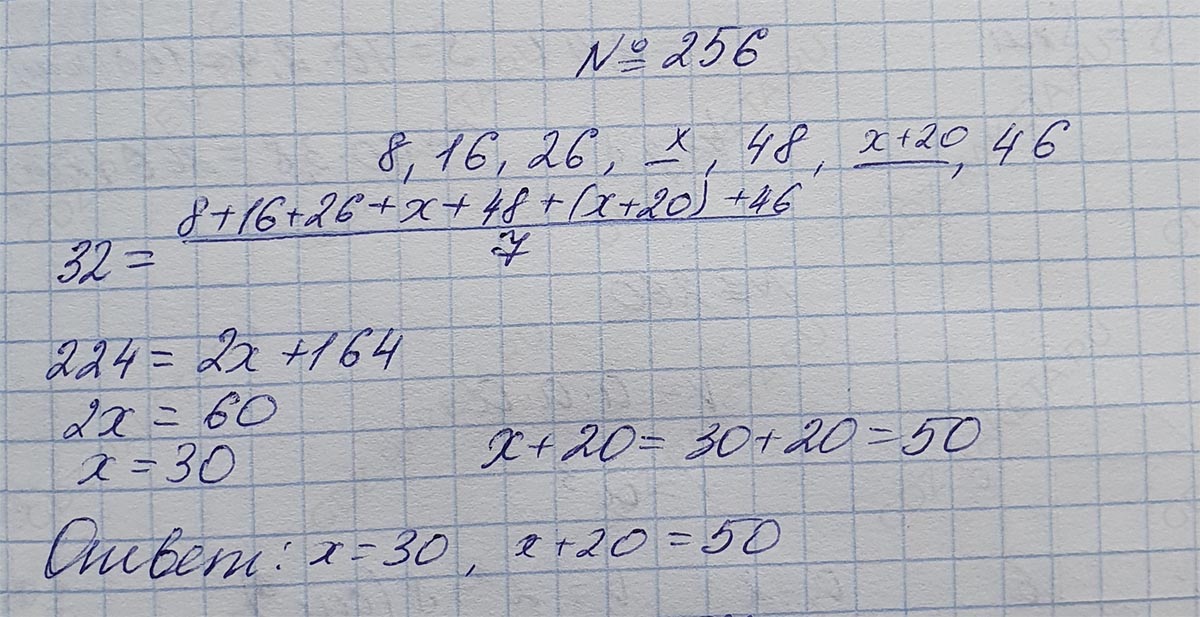 № 256
8, 16, 26, x, 48, x+20, 46
32 = (8+16+26+x+48+(x+20)+46)/7
224 = 2x+164
2x = 60
x = 30
x+20 = 30+20 = 50
Ответ: x=30, x+20=50